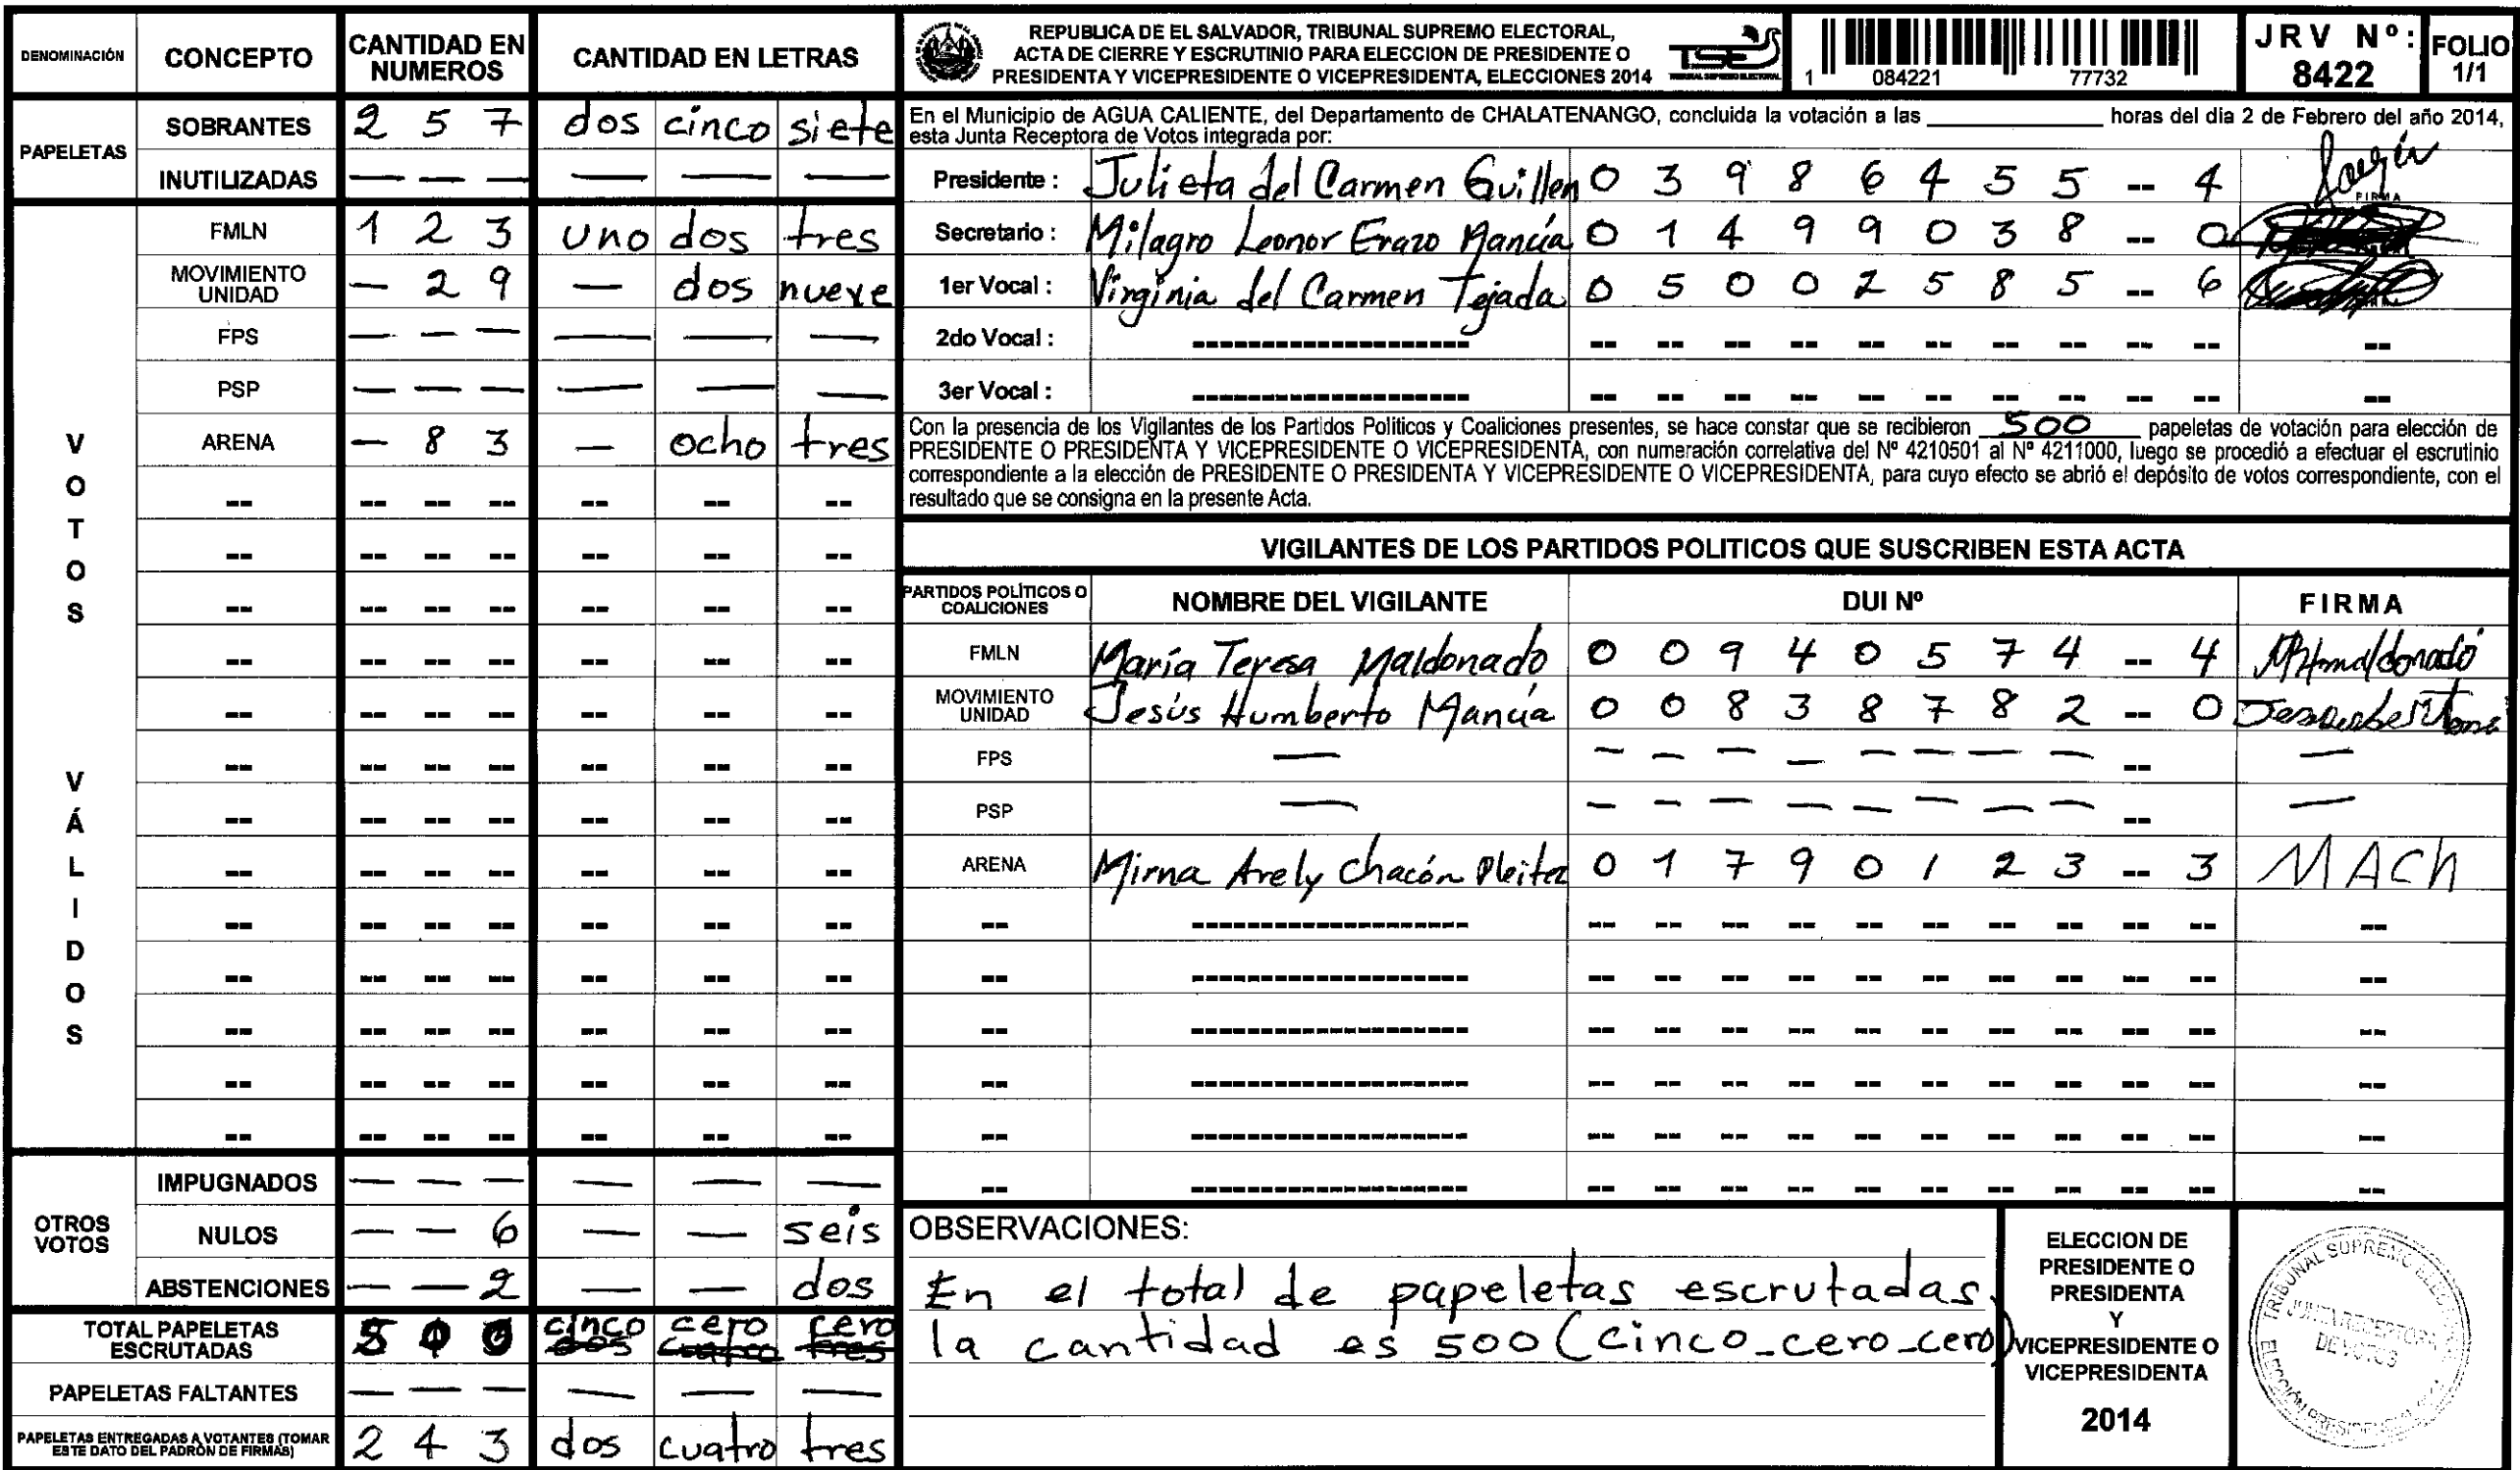 DENOMINACIÓN CONCEPTO CANTIDAD EN NUMEROS CANTIDAD EN LETRAS
PAPELETAS
SOBRANTES 2 5 7 dos cinco siete
INUTILIZADAS — — — — — —
VOTOS VÁLIDOS
FMLN 1 2 3 uno dos tres
MOVIMIENTO UNIDAD — 2 9 — dos nueve
FPS — — — — — —
PSP — — — — — —
ARENA — 8 3 — ocho tres
-- -- -- -- -- -- --
-- -- -- -- -- -- --
-- -- -- -- -- -- --
-- -- -- -- -- -- --
-- -- -- -- -- -- --
-- -- -- -- -- -- --
-- -- -- -- -- -- --
-- -- -- -- -- -- --
-- -- -- -- -- -- --
-- -- -- -- -- -- --
-- -- -- -- -- -- --
-- -- -- -- -- -- --
-- -- -- -- -- -- --
OTROS VOTOS
IMPUGNADOS — — — — — —
NULOS — — 6 — — seis
ABSTENCIONES — — 2 — — dos
TOTAL PAPELETAS ESCRUTADAS 5 0 0 cinco cero cero
PAPELETAS FALTANTES — — — — — —
PAPELETAS ENTREGADAS A VOTANTES (TOMAR ESTE DATO DEL PADRÓN DE FIRMAS) 2 4 3 dos cuatro tres
REPUBLICA DE EL SALVADOR, TRIBUNAL SUPREMO ELECTORAL,
ACTA DE CIERRE Y ESCRUTINIO PARA ELECCION DE PRESIDENTE O
PRESIDENTA Y VICEPRESIDENTE O VICEPRESIDENTA, ELECCIONES 2014
TSE
TRIBUNAL SUPREMO ELECTORAL
1 084221 77732
JRV Nº: 8422
FOLIO 1/1
En el Municipio de AGUA CALIENTE, del Departamento de CHALATENANGO, concluida la votación a las ____________ horas del dia 2 de Febrero del año 2014,
esta Junta Receptora de Votos integrada por:
Presidente : Julieta del Carmen Guillen 0 3 9 8 6 4 5 5 -- 4
FIRMA
Secretario : Milagro Leonor Erazo Mancía 0 1 4 9 9 0 3 8 -- 0
1er Vocal : Virginia del Carmen Tejada 0 5 0 0 2 5 8 5 -- 6
2do Vocal : -------------------- -- -- -- -- -- -- -- -- -- -- --
3er Vocal : -------------------- -- -- -- -- -- -- -- -- -- -- --
Con la presencia de los Vigilantes de los Partidos Politicos y Coaliciones presentes, se hace constar que se recibieron 500 papeletas de votación para elección de
PRESIDENTE O PRESIDENTA Y VICEPRESIDENTE O VICEPRESIDENTA, con numeración correlativa del Nº 4210501 al Nº 4211000, luego se procedió a efectuar el escrutinio
correspondiente a la elección de PRESIDENTE O PRESIDENTA Y VICEPRESIDENTE O VICEPRESIDENTA, para cuyo efecto se abrió el depósito de votos correspondiente, con el
resultado que se consigna en la presente Acta.
VIGILANTES DE LOS PARTIDOS POLITICOS QUE SUSCRIBEN ESTA ACTA
PARTIDOS POLÍTICOS O COALICIONES NOMBRE DEL VIGILANTE DUI Nº FIRMA
FMLN María Teresa Maldonado 0 0 9 4 0 5 7 4 -- 4
MOVIMIENTO UNIDAD Jesús Humberto Mancía 0 0 8 3 8 7 8 2 -- 0
FPS — — — — — — — — — -- —
PSP — — — — — — — — — -- —
ARENA Mirna Arely Chacón Pleitez 0 1 7 9 0 1 2 3 -- 3 MACh
-- -------------------- -- -- -- -- -- -- -- -- -- -- --
-- -------------------- -- -- -- -- -- -- -- -- -- -- --
-- -------------------- -- -- -- -- -- -- -- -- -- -- --
-- -------------------- -- -- -- -- -- -- -- -- -- -- --
-- -------------------- -- -- -- -- -- -- -- -- -- -- --
-- -------------------- -- -- -- -- -- -- -- -- -- -- --
OBSERVACIONES:
En el total de papeletas escrutadas.
la cantidad es 500 (cinco_cero_cero)
ELECCION DE
PRESIDENTE O
PRESIDENTA
Y
VICEPRESIDENTE O
VICEPRESIDENTA
2014
TRIBUNAL SUPREMO ELECTORAL
JUNTA RECEPTORA
DE VOTOS